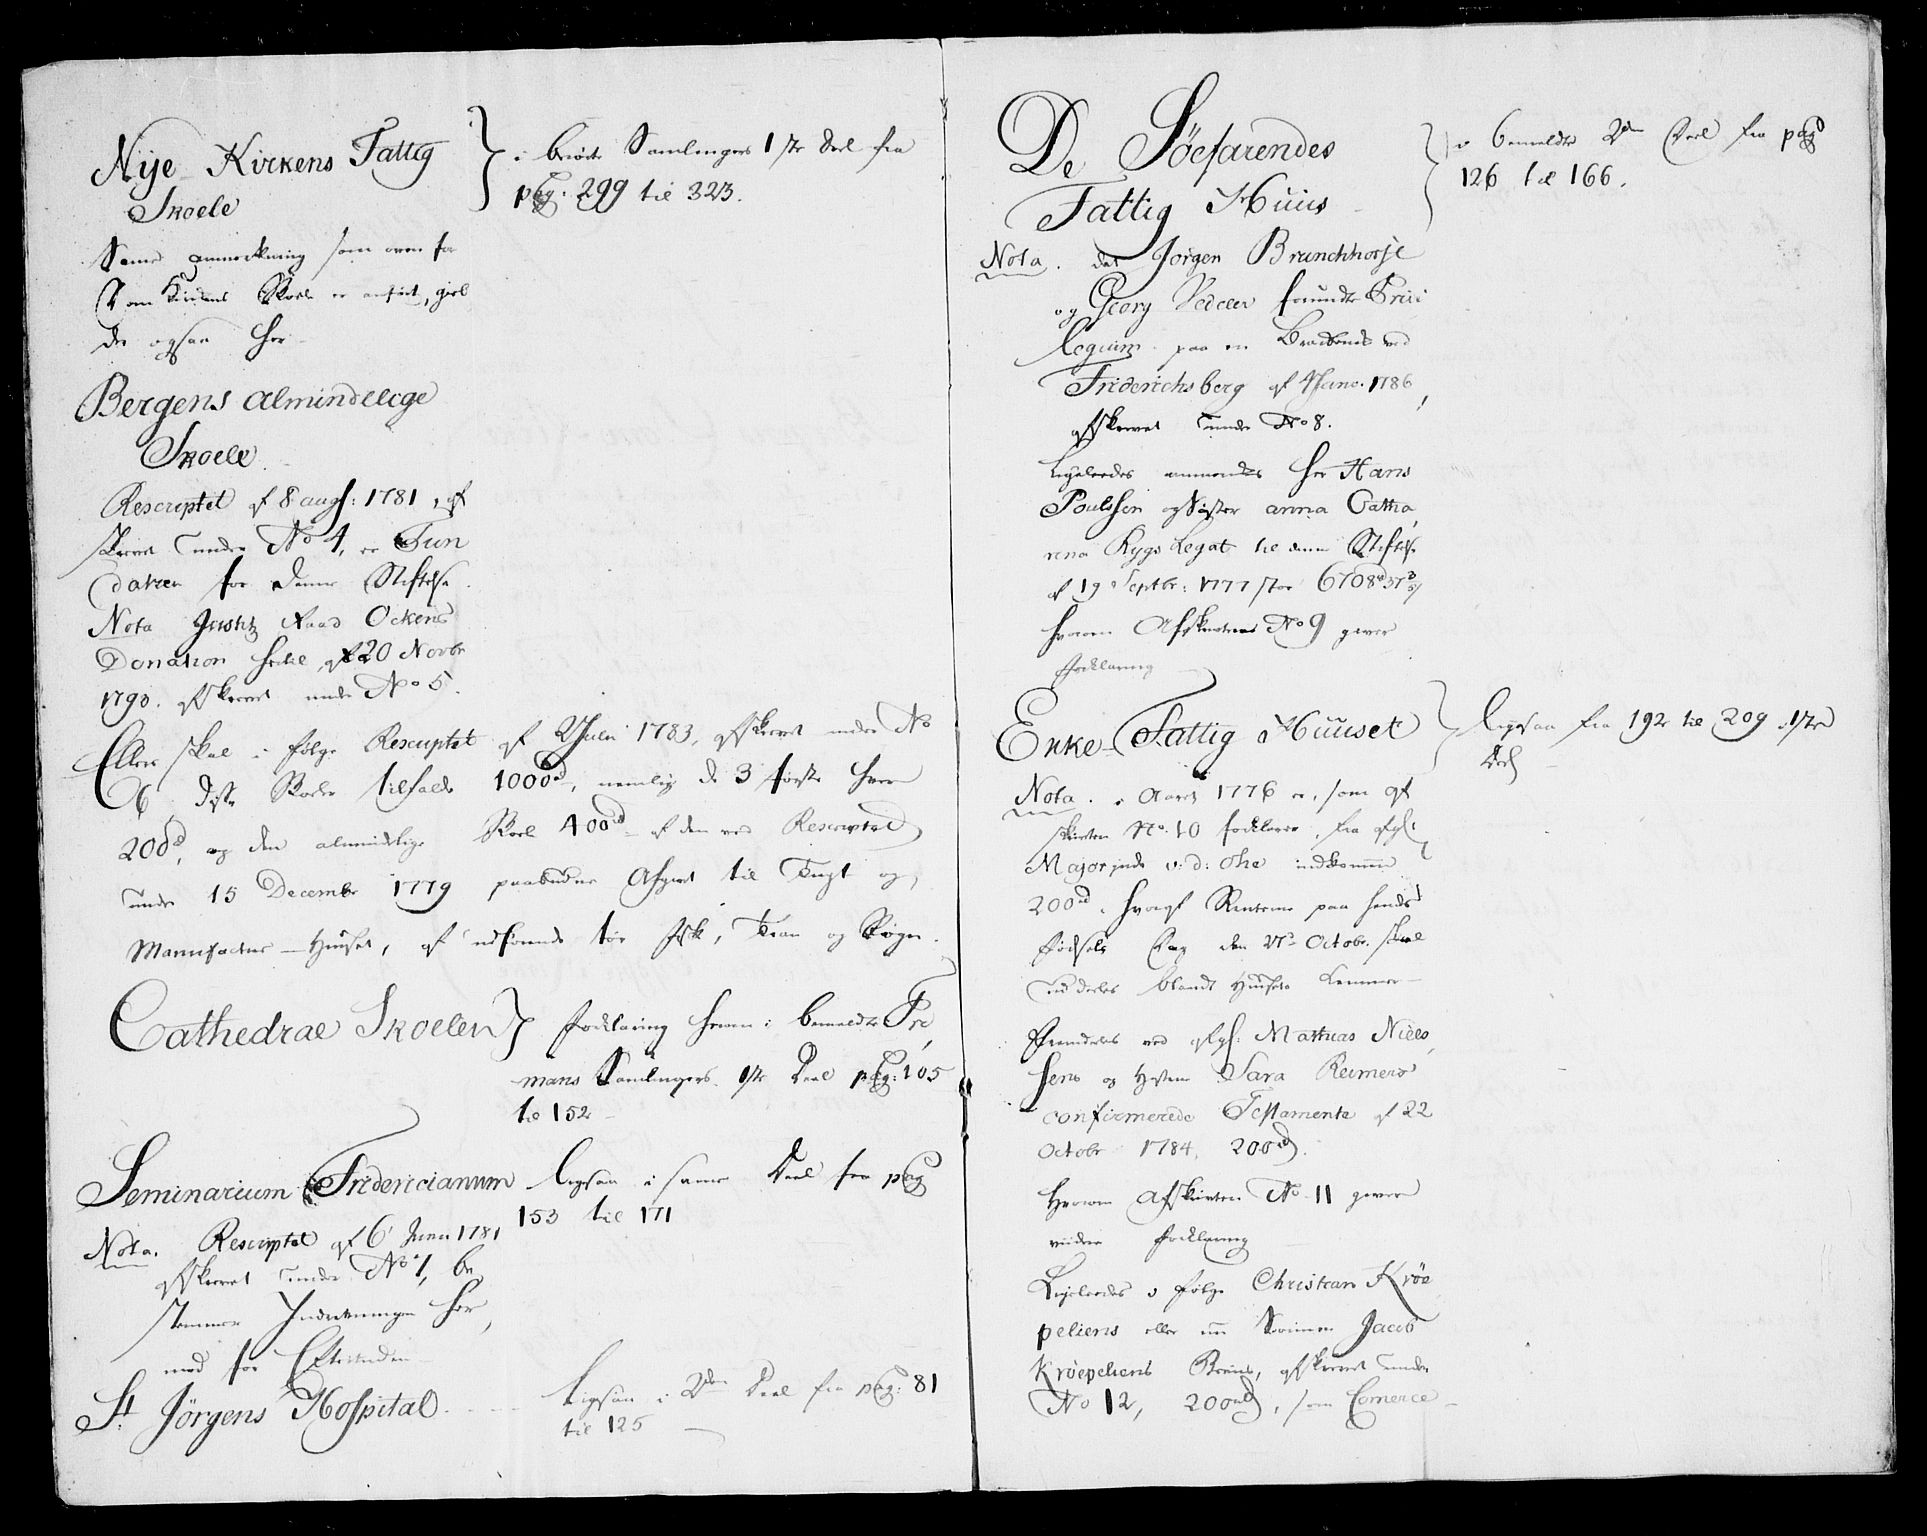 Nÿe Kirkens Fattig
Skoele
i berörte Samlingers 1ste Deel fra
pag. 299 til 323.
Same anmerkning som oven for
Dom Kirkens Skoele er anført, giel
der ogsaa her
Bergens almindelige
Skoele
Rescriptet af 8 augs: 1781, af
skrevet under No 4, er Fun
datzen for denne Stiftelse.
Nota Justitz Raad Ockens
Donation hertil af 20 Novbr
1790. afskrevet under No 5.
Ellers skal i følge Rescriptet af Julii 1783, afskrevet under No
6 disse Skoeler tilfalde 1000rd, nemlig de 3 første hver
200rd, og den almindelige Skoel 400rd af den ved Rescriptet
under 15 Decembr 1779 paabudne Afgivt til Tugt og
Manufactur-Huuset, af udförende tör Fisk, Tran og Rogn.
Cathedrae Skoelen
forklaring herom i bemeldte Fri
mans Samlingers 1ste Deel pag: 105
til 152
Seminarium Fridericianum
ligesaa i samme Deel fra pag
153 til 171
Nota. Rescriptet af 6 Junii 1781
afskrevet under No 7, be
stemmer Indretningen her,
med for Eftertiden
St. Jörgens Hospital
Ligesaa i 2den Deel fra pag: 81
til 125
De Söefarendes
Fattig Huus
i bemeldte 2den Deel fra pag
126 til 166.
Nota. det Jörgen Brunchhorst
og Georg Vedeler forundte Privi
legium paa en Brandveed
Friderichsberg af Junii 1786,
afskrevet under No 8.
Ligeleedes anmeldes her Hans
Poulssen og Søster anna Catha,
rina Rygs Legat til denne Stiftelse
af 19 Septbr: 1777 stor 6708rd 37
hvorom Afskrivten No 9 giver
forklaring
Enke-Fattig Huuset
Ligesaa fra 192 til 209 i 1ste
Deel
Nota. i Aaret 1776 er, som af
skrivten No. 10 forklarer, fra afg:
Majorinde v: d: Ohe indkommen
200rd, hvoraf Renterne paa hendes
födsels Dag den Octobr. skal
uddeeles blandt Huusets Lemmer
Fremdeeles ved afg: Mathias Niels
sens og Hustrue Sara Reimers
confirmerede Testamente af 22
Octobr 1784, 200rd.
Hvorom Afskrivten No 11 giver
viidere forklaring
Ligeleedes i følge Christian Kröe
peliens eller nu Jacob
Kröepeliens Beviis, afskrevet under
No 12, 200rd, som Comerce